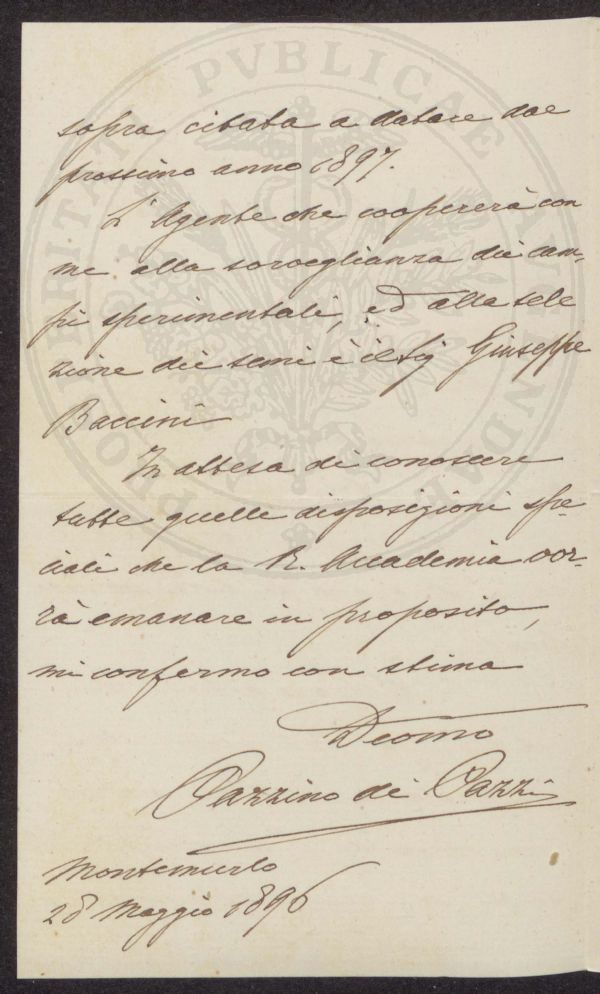 sopra citata a datare dal
prossimo anno 1897.
L'Agente che coopererà con
me alla sorveglianza dei cam-
pi sperimentali, ed alla sele
zione dei semi è il Sig Giuseppe
Baccini
In attesa di conoscere
tutte quelle disposizioni spe
ciali che la R. Accademia vor-
rà emanare in proposito,
mi confermo con stima
Devmo
Pazzino de' Pazzi
Montemurlo
28 Maggio 1896
PVBLICAE